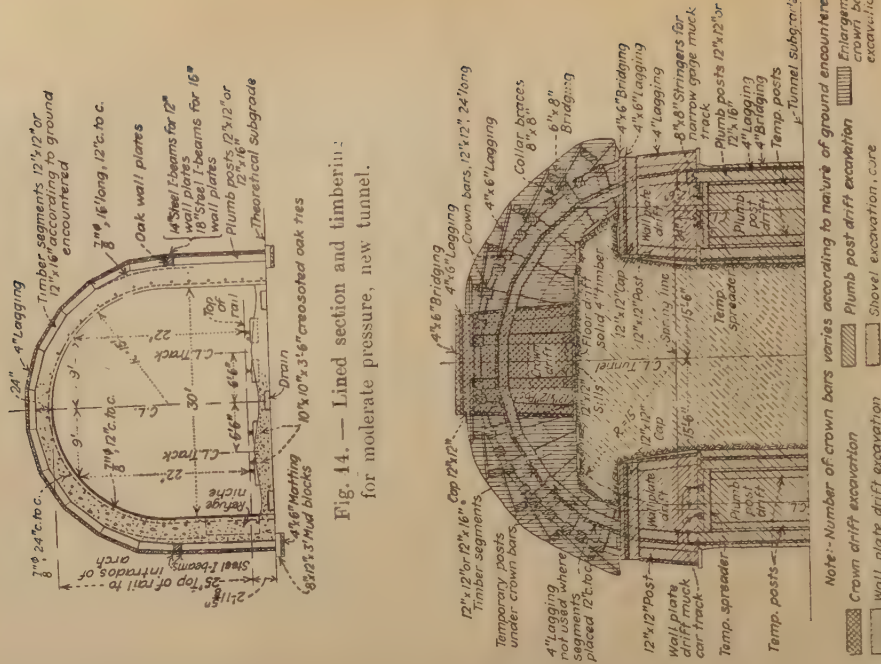 24"
4"Lagging
Timber segments 12"x12"or
12"x16"according to ground
encountered
7/8"ϕ, 16'long, 12"c.to c.
Oak wall plates
14"Steel I-beams for 12"
wall plates
18"Steel I-beams for 16"
wall plates
Plumb posts 12"x12"or
12"x16"
Theoretical subgrade
7/8"ϕ, 24"c.to c.
7/8"ϕ, 12"c.to c.
9'
9'
C.L.
22'
22'
C.L.Track
C.L.Track
30'
6'6"
6'6"
Top
of
rail
Refuge
niche
Steel I-beams
25' Top of rail to
intrados of
arch
Drain
10"x10"x3'6"creosoted oak ties
4"x6"Matting
8"x12"x3'Mud blocks
Fig. 14. — Lined section and timbering
for moderate pressure, new tunnel.
4"x6"Bridging
4"x6"Lagging
Crown bars, 12"x12", 24'long
4"x6"Lagging
Collar braces
8"x8"
6"x8"
Bridging
4"x6"Bridging
4"x6"Lagging
4"Lagging
8"x8"Stringers for
narrow gage muck
track
Plumb posts 12"x12"or
12"x16"
4"Lagging
4"Bridging
Temp. posts
Tunnel subgrade
Cap 12"x12"
12"x12"or 12"x16"
Timber segments
Temporary posts
under crown bars
4"Lagging
not used where
segments
placed 12"c.to c.
12"x12"Post
Wall plate
drift muck
car track
Temp. spreader
Temp. posts
Crown
drift
12"x12"
Sills
Floor drift
solid 4"timber
12"x12"Cap
12"x12"Post
Spring line
15'-6"
15'-6"
C.L.Tunnel
Temp.
spreader
12"x12"
Cap
Wall plate
drift
Wall plate
drift
Plumb
post
drift
Plumb
post
drift
Note:-Number of crown bars varies according to nature of ground encountered
Crown drift excavation
Plumb post drift excavation
Wall plate drift excavation
Shovel excavation, core